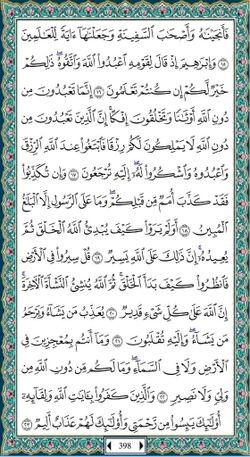 فَأَنجَيْنَٰهُ وَأَصْحَٰبَ ٱلسَّفِينَةِ وَجَعَلْنَٰهَآ ءَايَةً لِّلْعَٰلَمِينَ
١٥ وَإِبْرَٰهِيمَ إِذْ قَالَ لِقَوْمِهِ ٱعْبُدُوا۟ ٱللَّهَ وَٱتَّقُوهُ ۖ ذَٰلِكُمْ
خَيْرٌ لَّكُمْ إِن كُنتُمْ تَعْلَمُونَ ١٦ إِنَّمَا تَعْبُدُونَ مِن
دُونِ ٱللَّهِ أَوْثَٰنًا وَتَخْلُقُونَ إِفْكًا ۚ إِنَّ ٱلَّذِينَ تَعْبُدُونَ مِن
دُونِ ٱللَّهِ لَا يَمْلِكُونَ لَكُمْ رِزْقًا فَٱبْتَغُوا۟ عِندَ ٱللَّهِ ٱلرِّزْقَ
وَٱعْبُدُوهُ وَٱشْكُرُوا۟ لَهُۥٓ ۖ إِلَيْهِ تُرْجَعُونَ ١٧ وَإِن تُكَذِّبُوا۟
فَقَدْ كَذَّبَ أُمَمٌ مِّن قَبْلِكُمْ ۖ وَمَا عَلَى ٱلرَّسُولِ إِلَّا ٱلْبَلَٰغُ
ٱلْمُبِينُ ١٨ أَوَلَمْ يَرَوْا۟ كَيْفَ يُبْدِئُ ٱللَّهُ ٱلْخَلْقَ ثُمَّ
يُعِيدُهُۥٓ ۚ إِنَّ ذَٰلِكَ عَلَى ٱللَّهِ يَسِيرٌ ١٩ قُلْ سِيرُوا۟ فِى ٱلْأَرْضِ
فَٱنظُرُوا۟ كَيْفَ بَدَأَ ٱلْخَلْقَ ۚ ثُمَّ ٱللَّهُ يُنشِئُ ٱلنَّشْأَةَ ٱلْءَاخِرَةَ ۚ
إِنَّ ٱللَّهَ عَلَىٰ كُلِّ شَىْءٍ قَدِيرٌ ٢٠ يُعَذِّبُ مَن يَشَآءُ وَيَرْحَمُ
مَن يَشَآءُ ۖ وَإِلَيْهِ تُقْلَبُونَ ٢١ وَمَآ أَنتُم بِمُعْجِزِينَ فِى
ٱلْأَرْضِ وَلَا فِى ٱلسَّمَآءِ ۖ وَمَا لَكُم مِّن دُونِ ٱللَّهِ مِن
وَلِىٍّ وَلَا نَصِيرٍ ٢٢ وَٱلَّذِينَ كَفَرُوا۟ بِـَٔايَٰتِ ٱللَّهِ وَلِقَآئِهِۦٓ
أُو۟لَٰٓئِكَ يَئِسُوا۟ مِن رَّحْمَتِى وَأُو۟لَٰٓئِكَ لَهُمْ عَذَابٌ أَلِيمٌ ٢٣
398